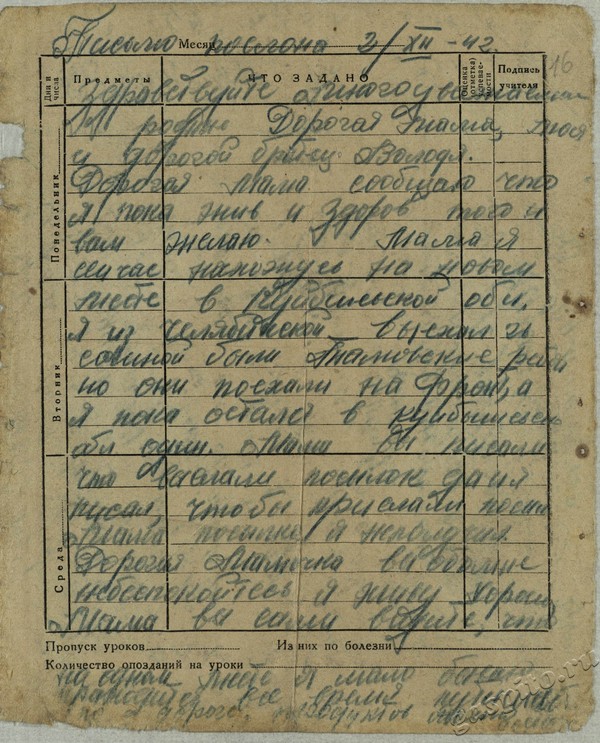 Письмо Месяц послона 2/XII - 42.
16
Дни и числа Предметы ЧТО ЗАДАНО Оценка (отметка) успеваемости Подпись учителя
Здравствуйте многоуважаемая
родные Дорогая Мама, тюся
и дорогой братец Володя.
Понедельник
Дорогая Мама сообщаю что
я пока жив и здоров того и
вам желаю. Мама я
сейчас нахожусь на новом
месте в Куйбышевской обл.
я из Челябинской выехал
сомной были Тамбовские
Вторник
но они поехали на фронт, а
я пока остался в куйбышевск
обл один. Мама вы писали
что выслали посылок да и я
писал чтобы прислали посыл
Мама посылки я неполучил.
Среда
Дорогая Мамочка вы обомне
небеспокойтесь я живу хорошо
Мама вы сами видите, что
Пропуск уроков Из них по болезни
Количество опозданий на уроки
на одном месте я мало бываю
приходится все время
дороге продуктов
gosono.ru